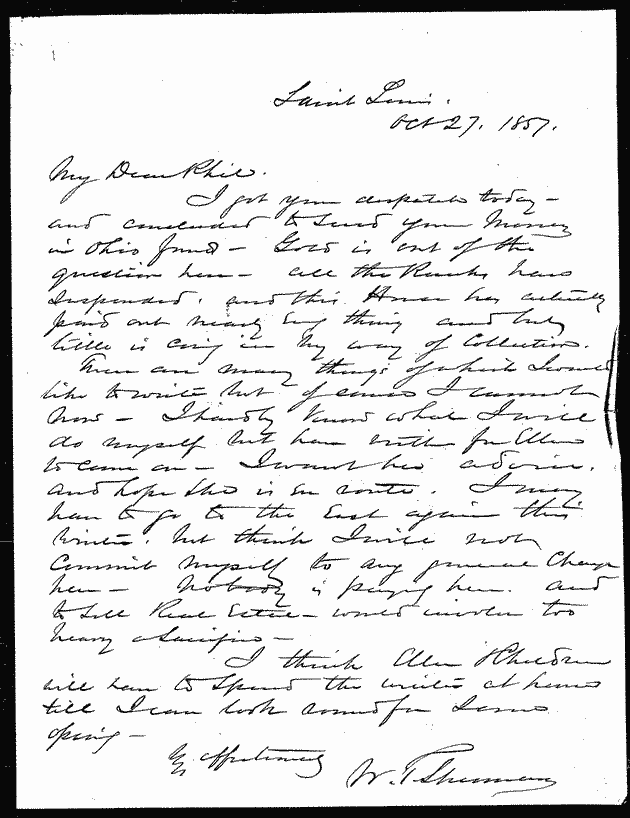 Saint Louis.
Oct 27. 1857.
My Dear Phil.
I got your despatch today -
and concluded to send your Money
in Ohio funds - Gold is out of the
question here - all the Banks have
suspended. and this House has actually
paid out nearly Every thing and but
little is coming in by way of Collection.
There are many things of which I would
like to write but of course I cannot
now - I hardly know what I will
do myself but have written for Ellen
to come on - I want her advice.
and hope she is en route. I may
have to go to the East again this
Winter. but think I will not
Commit myself to any general Change
here - Nobody is paying here. and
to sell Real Estate - would involve too
heavy a Sacrifice -
I think Ellen & Children
will have to spend the winter at home
till I can look round for some
opening -
Yrs affectionately
W. T. Sherman